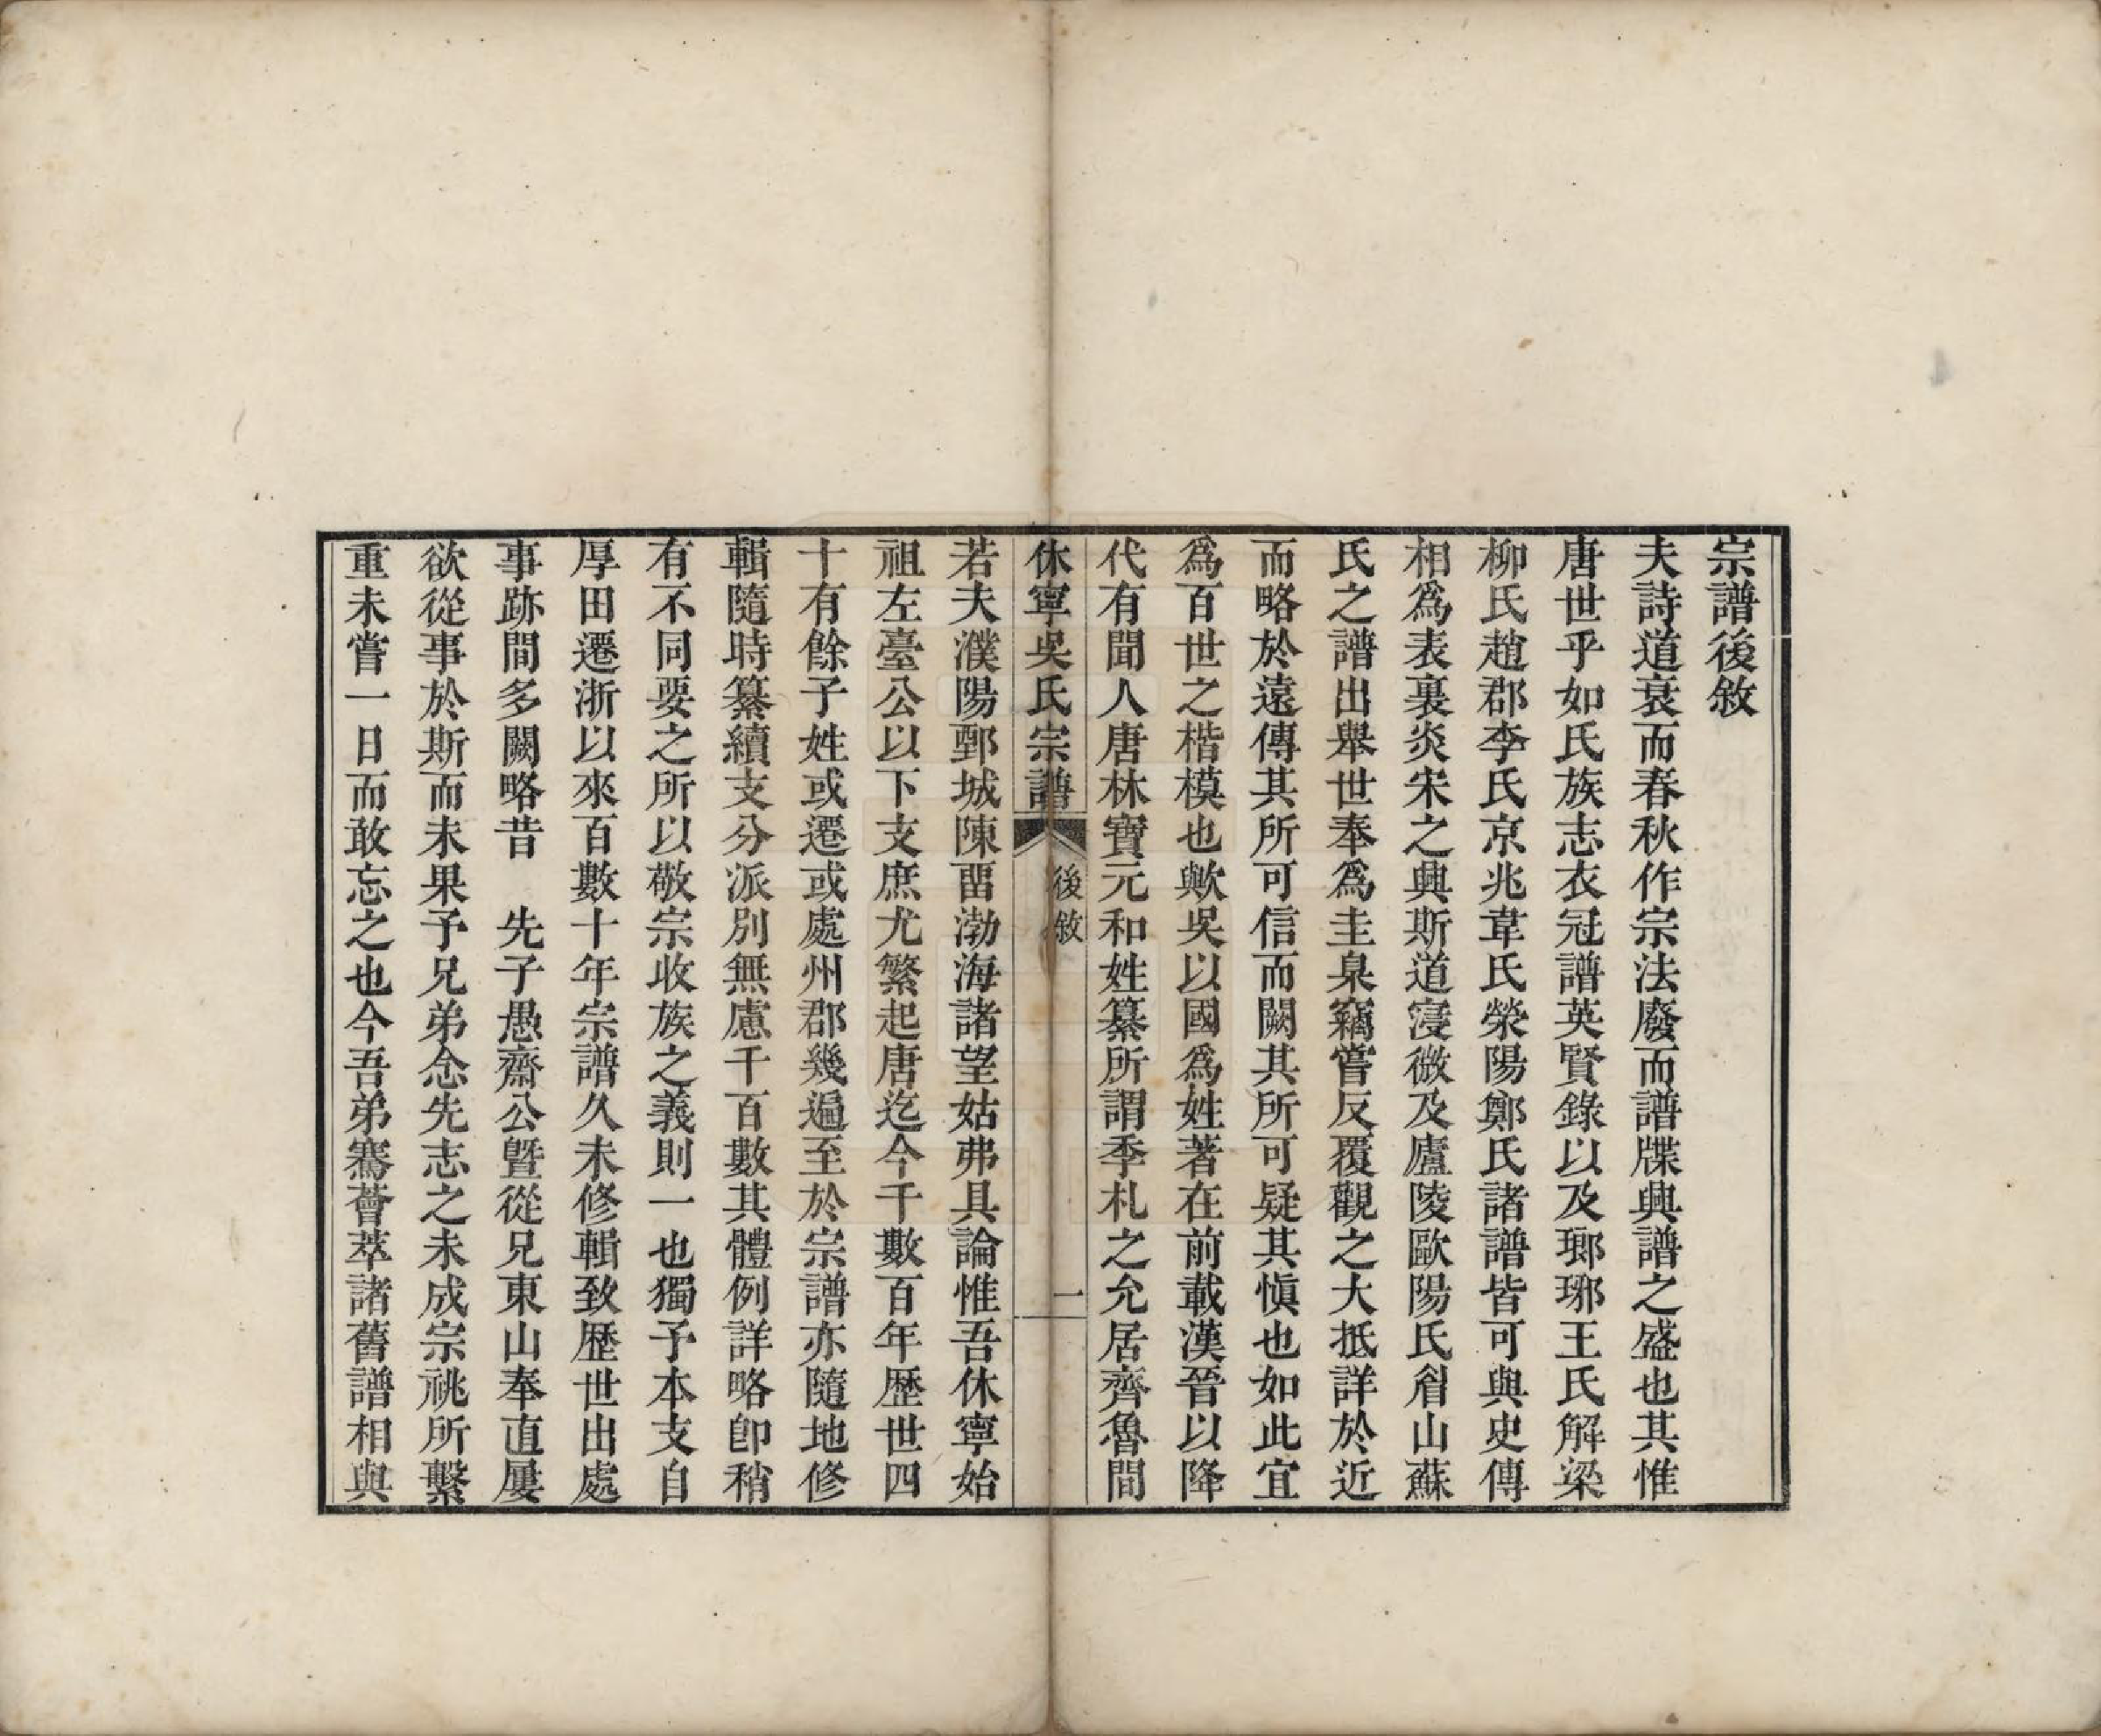 宗譜後敘
夫詩道衰而春秋作宗法廢而譜牒興譜之盛也其惟
唐世乎如氏族志衣冠譜英賢錄以及瑯琊王氏解梁
柳氏趙郡李氏京兆韋氏榮陽鄭氏諸譜皆可與史傳
相爲表裏炎宋之興斯道寖微及廬陵歐陽氏眉山蘇
氏之譜出舉世奉爲圭臬竊嘗反覆觀之大抵詳於近
而略於遠傳其所可信而闕其所可疑其愼也如此宜
爲百世之楷模也歟吳以國爲姓著在前載漢晉以降
代有聞人唐林寶元和姓纂所謂季札之允居齊魯間
休寧吳氏宗譜 後敘 一
若夫濮陽鄄城陳畱渤海諸望姑弗具論惟吾休寧始
祖左臺公以下支庶尤繁起唐迄今千數百年歷世四
十有餘子姓或遷或處州郡幾遍至於宗譜亦隨地修
輯隨時纂續支分派別無慮千百數其體例詳略卽稍
有不同要之所以敬宗收族之義則一也獨予本支自
厚田遷浙以來百數十年宗譜久未修輯致歷世出處
事跡間多闕略昔　先子愚齋公曁從兄東山奉直屢
欲從事於斯而未果予兄弟念先志之未成宗祧所繫
重未嘗一日而敢忘之也今吾弟騫薈萃諸舊譜相與